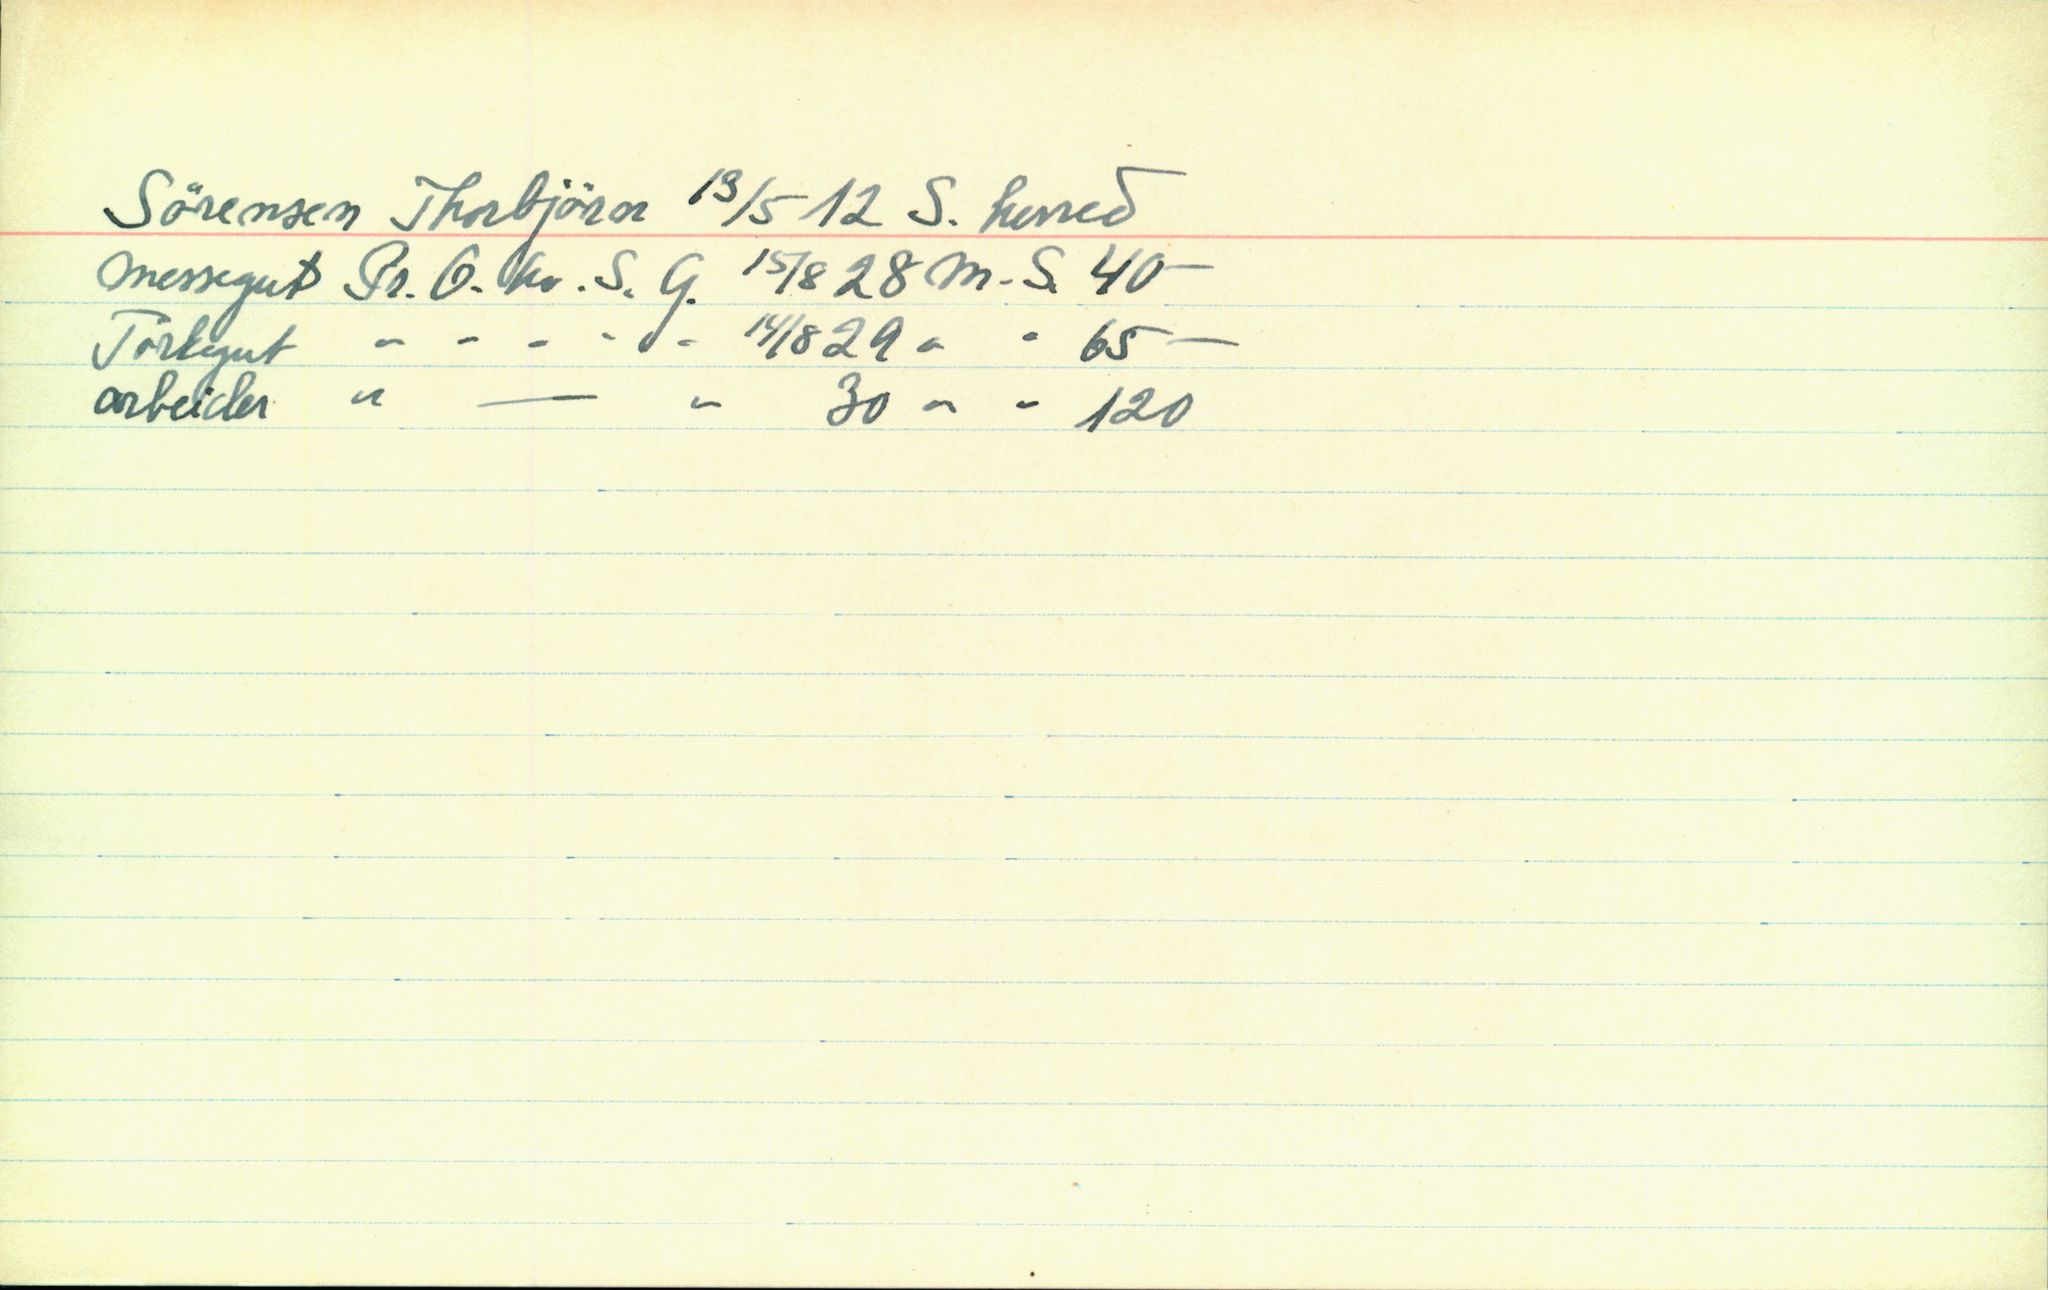 Sörensen Thorbjörn 19/5 12 S. herred
messegut Pr. O. kv. S. G. 15/8 28 M. S. 40 —
Törkegut " " " " " " 14/8 29 " " 65 —
arbeider " — " 30 " " 120